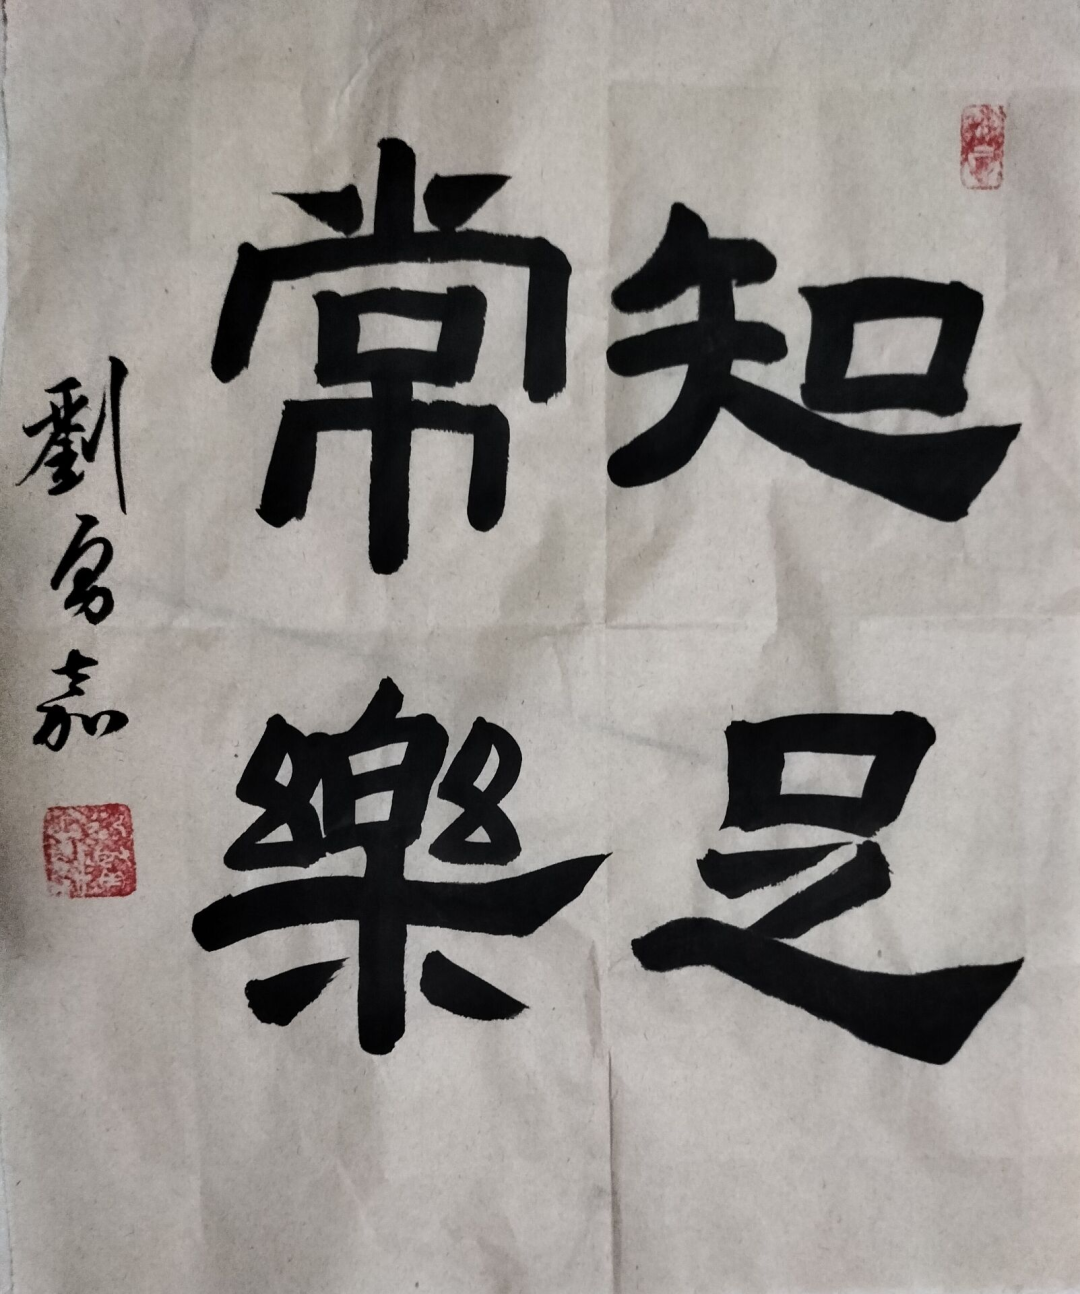 知足
常樂
劉勇嘉